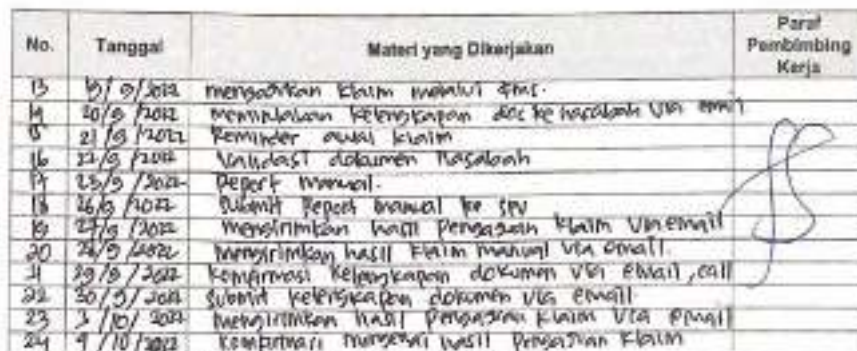 No. Tanggal Materi yang Dikerjakan Paraf Pembimbing Kerja
13 19/9/2022 klaim melalui
19 20/9/2022 kelengkapan doc ke nasabah via email
15 21/9/2022 Reminder awal klaim
16 22/9/2022 Validasi dokumen nasabah
17 23/9/2022 Report manual.
18 26/9/2022 Submit Report manual ke SPV
19 27/9/2022 mengirimkan hasil klaim via email
20 28/9/2022 mengirimkan hasil klaim manual via email.
21 29/9/2022 Kelengkapan dokumen via email, call
22 30/9/2022 Submit kelengkapan dokumen via email.
23 3/10/2022 mengirimkan hasil klaim via email
24 4/10/2022 hasil klaim